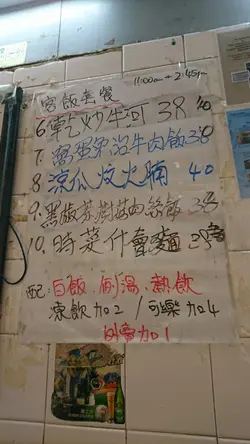 客飯套餐 11:00am - 2:45pm
6. 乾炒牛河 38
7. 窩蛋免治牛肉飯 38
8. 涼瓜炆火腩 40
9. 黑椒茶樹菇肉絲飯 38
10. 時菜什會麵 38
配: 白飯、例湯、熱飲
凍飲加2 / 可樂加4
外賣加1